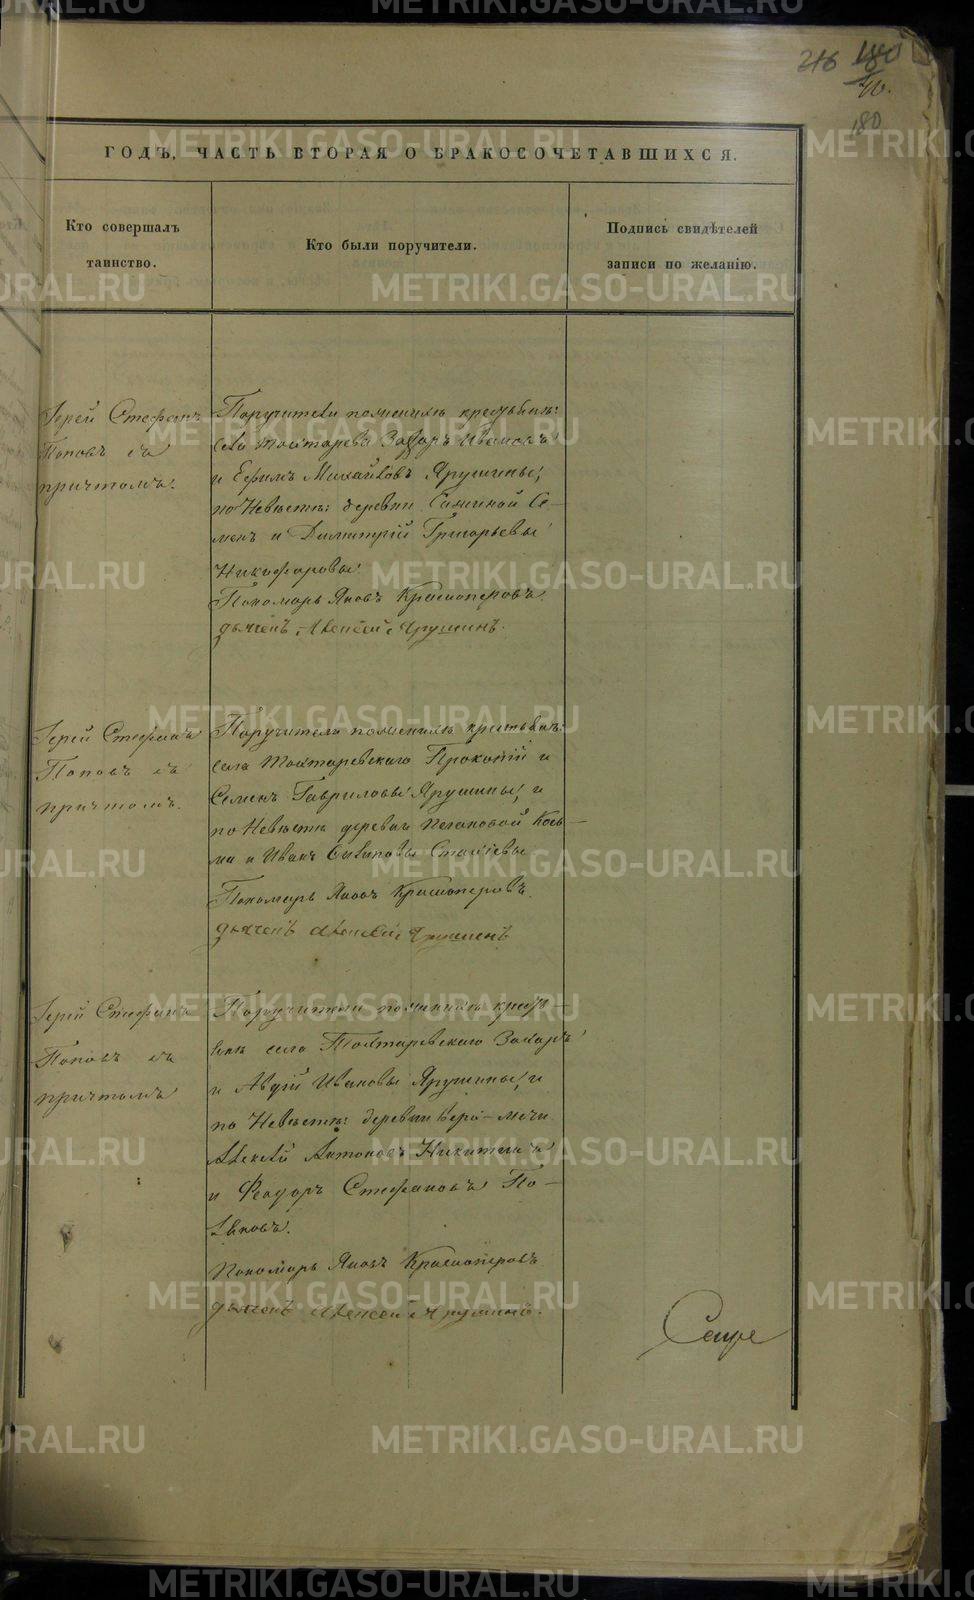 216 180
180
ГОДЪ, ЧАСТЬ ВТОРАЯ О БРАКОСОЧЕТАВШИХСЯ.
Кто совершалъ
таинство.
Кто были поручители.
Подпись свидѣтелей
записи по желанію.
Іерей Стефанъ
Поповъ съ
причтомъ.
Поручители по женихѣ крестьяне:
села Тохтарева Захаръ Ивановъ
и Ефимъ Михайловъ Ярушины,
по Невѣстѣ: деревни Се–
менъ и Димитрій Григорьевы
Никифоровы.
Пономарь Яковъ Красноперовъ
дьячекъ Алексей Ярушинъ.
Іерей Стефанъ
Поповъ съ
причтомъ.
Поручители по женихѣ крестьяне:
села Тохтаревскаго Прокопій и
Семенъ Гавриловы Ярушины, и
по Невѣстѣ деревни Козь–
ма и Иванъ
Пономарь Яковъ Красноперовъ
дьячекъ Алексей Ярушинъ
Іерей Стефанъ
Поповъ съ
причтомъ
Поручители по женихѣ кресть–
яне села Тохтаревскаго Захаръ
и Авдій Ивановы Ярушины, и
по Невѣстѣ: деревни
Алексей Антоновъ Никитинъ
и Феодоръ Стефановъ По–
ляковъ.
Пономарь Яковъ Красноперовъ
дьячекъ Алексей Ярушинъ.
METRIKI.GASO-URAL.RU